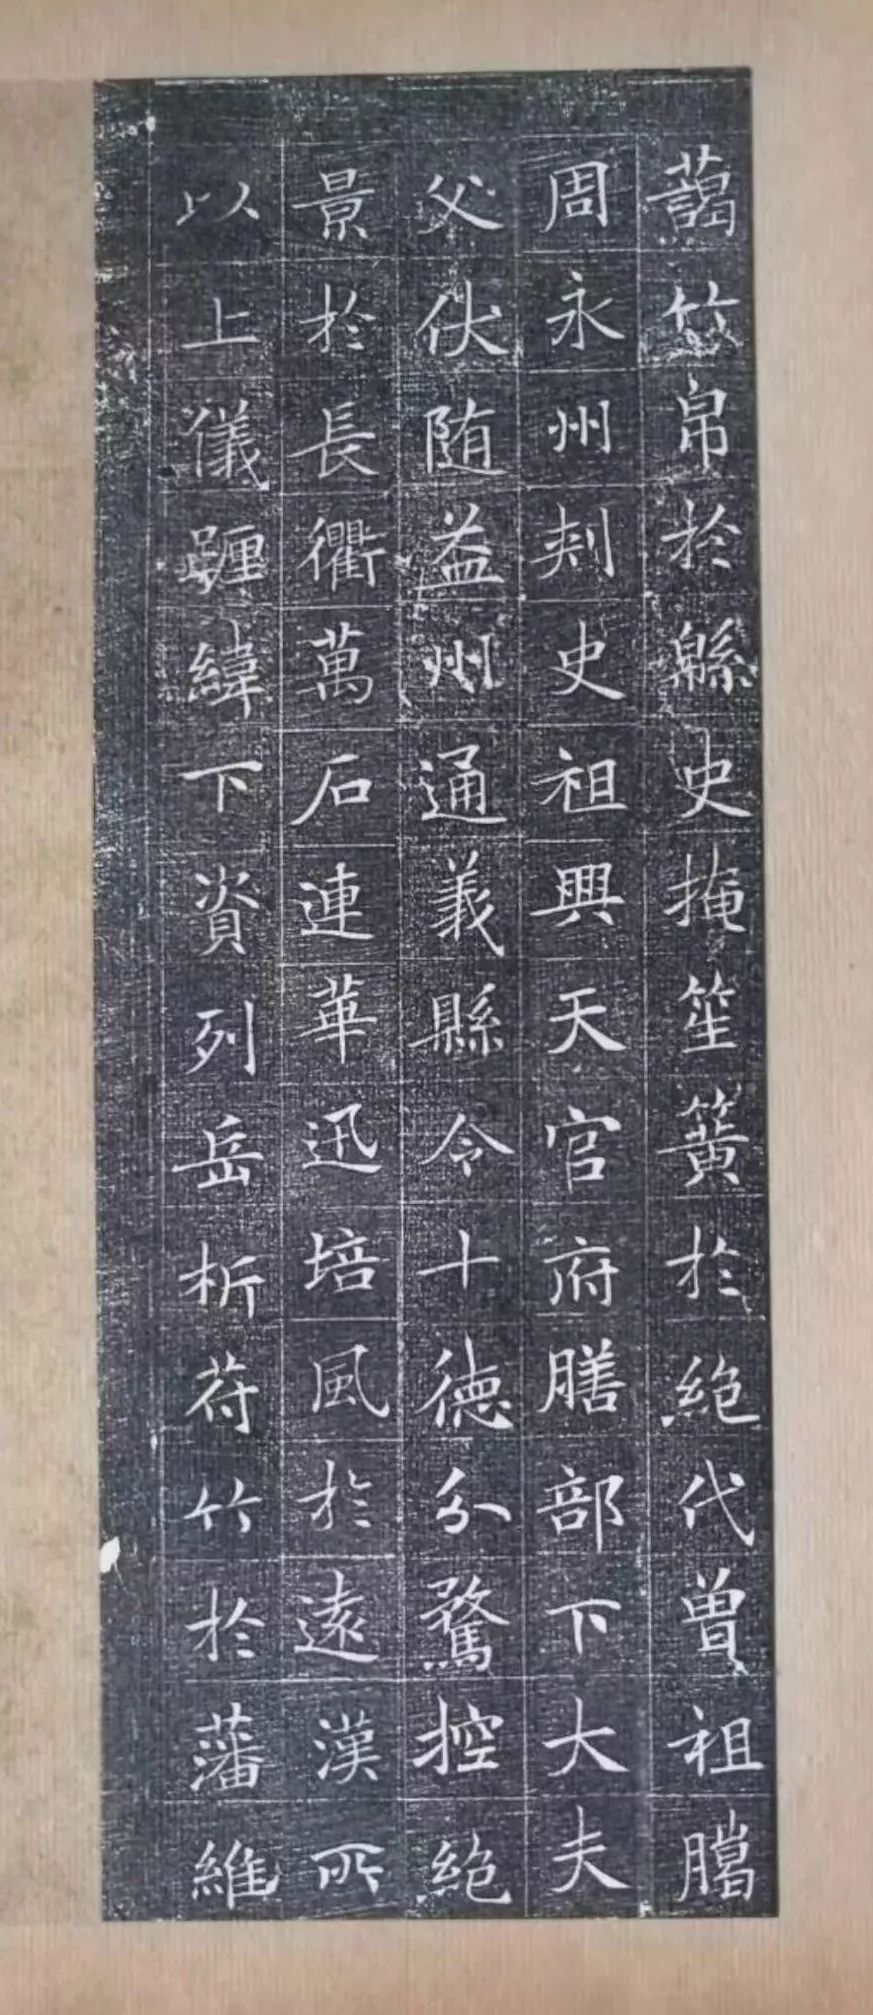 藹竹帛於緜史掩笙簧於絶代曾祖騰
周永州刾史祖興天官府膳部下大夫
父伏随益州通義縣令十德分騖控絶
景於長衢萬石連華迅培風於遠漢所
以上儀躔緯下資列岳析苻竹於藩維